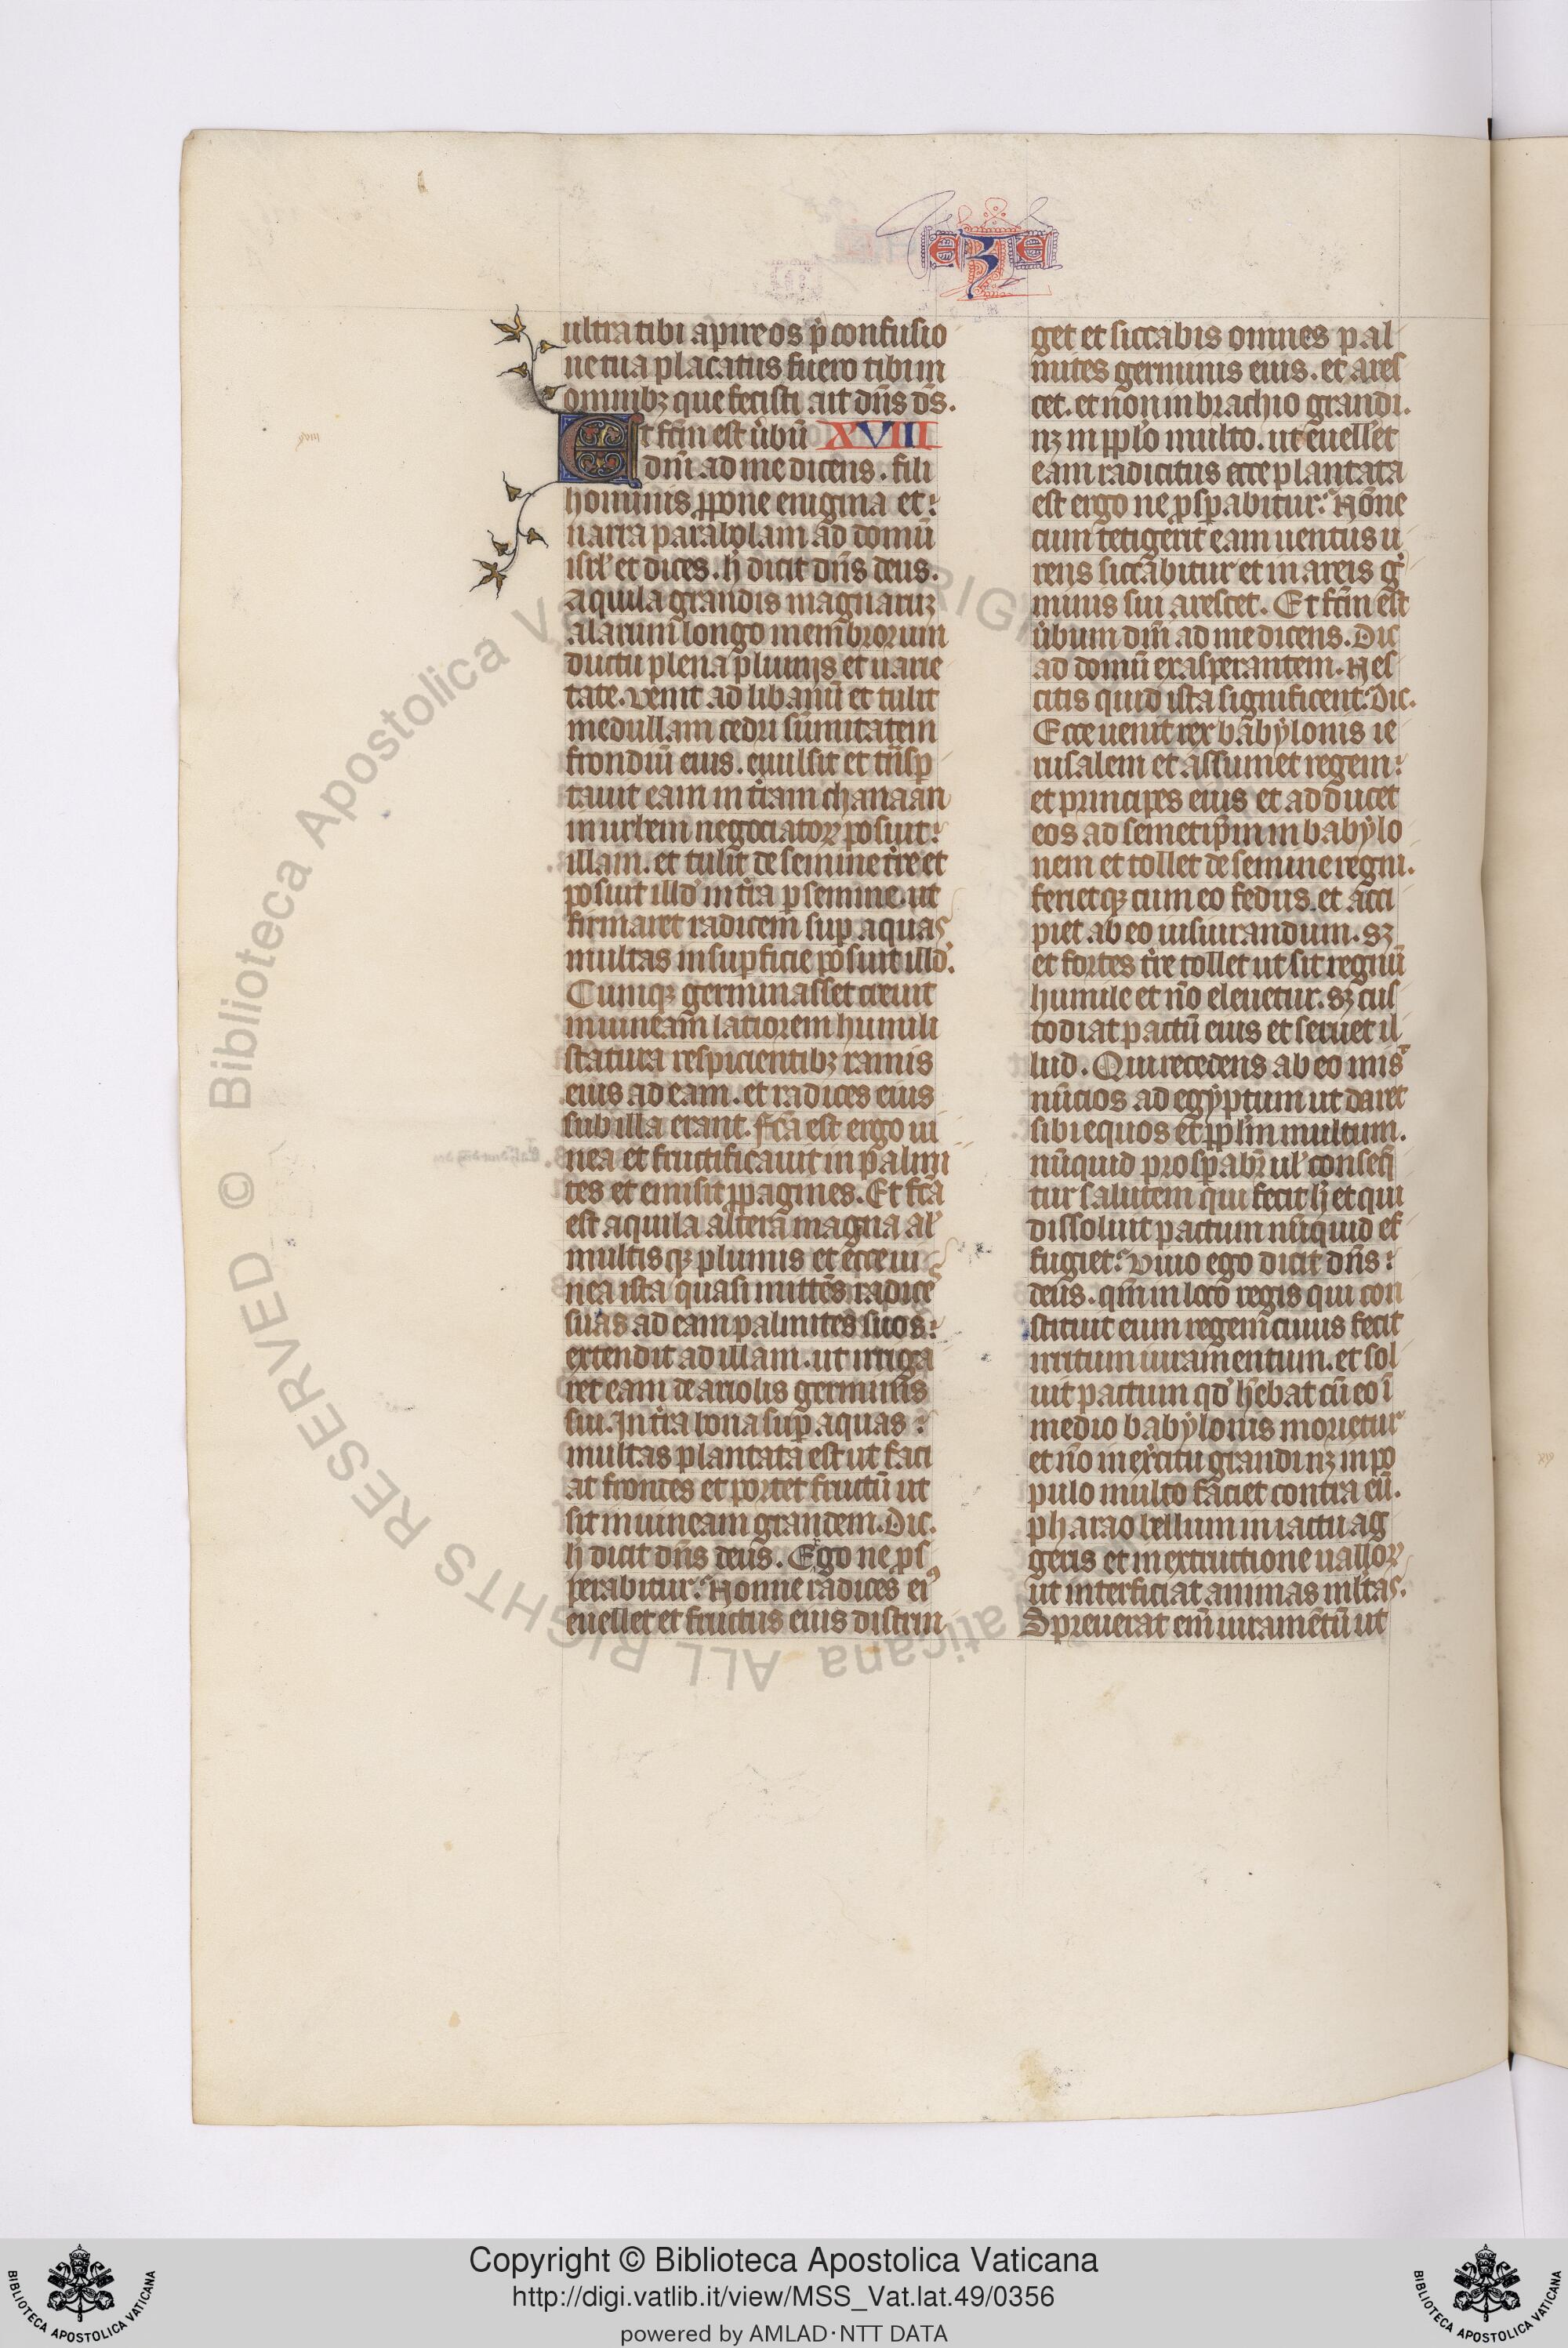 EZE
ultra tibi aperire os p̄ confusio
ne tua placatus fuero tibi in
omnibꝫ que fecisti ait dn̄s ds̄.
Et fcm̄ est u̇bū XVIII
dnī ad me dicens. fili
hominis ꝓpone enigma et
narra parabolam ad domū
isrl̓ et dices. h̄ dicit dn̄s deus.
aquila grandis magnaruꝫ
alarum longo membrorum
ductu plena plumis et uarie
tate. venit ad libanū et tulit
medullam cedri sūmitatem
frondiū eius. euulsit et tn̄sp
tauit eam in tr̄am chanaan
in urbem negociatoꝝ posuit
illam. et tulit de semine tr̄e et
posuit illd̓ in tr̄a p semine. ut
firmaret radicem sup aquas
multas in supficie posuit illd̓.
Cumqꝫ germinasset creuit
in uineam latiorem humili
statura respicientibꝫ ramis
eius ad eam. et radices eius
sub illa erant. fcā est ergo ui
nea et fructificauit in palmi
tes et emisit ꝓpagines. Et fcā
est aquila altera magna al̓
multisqꝫ plumis et ecce ui
nea ista quasi mittēs radice
suas ad eam palmites suos
extendit ad illam. ut irriga
ret eam de ariolis germinis
sui. In tr̄a bona sup aquas
multas plantata est ut faci
at frondes et portet fructū ut
sit in uineam grandem. Dic.
h̄ dicit dn̄s deus. Ego ne ꝓs
perabitur. Nonne radices eiꝰ
euellet et fructus eius distrin
get et siccabis omnes pal
mites germinis eius. et ares
cet. et non in brachio grandi.
nꝫ in pplo̓ multo. ut euellet
eam radicitus ecce plantata
est ergo ne ꝓspabitur. Nōne
cum tetigerit eam uentus u
rens siccabitur et in areis g̓
minis sui arescet. Et fcm̄ est
u̇bum dnī ad me dicens. Dic
ad domū exasperantem. Nes
citis quid ista significent. Dic.
Ecce uenit rex babylonis ie
rusalem et assumet regem
et principes eius et adducet
eos ad semetip̄m in babylo
nem et tollet de semine regni.
ferietqꝫ cum eo fedus. et acci
piet ab eo iusiurandum. sꝫ
et fortes tr̄e tollet ut sit regnū
humile et nō eleuetur. sꝫ cus
todiat pactū eius et seruet il
lud. Qui recedens ab eo mis̄
nūcios ad egyptum ut daret
sibi equos et pplm̄ multum.
nūquid prospabr̄ ul̓ conseq̄
tur salutem qui fecit h̄ et qui
dissoluit pactum nūquid ef
fugiet. Viuo ego dicit dn̄s
deus. qm̄ in loco regis qui con
stituit eum regem cuius fecit
irritum iuramentum. et sol
uit pactum qd̓ hēbat cū eo ī
medio babylonis morietur
et nō in exercitu grandi nꝫ in po
pulo multo faciet contra eū.
pharao bellum in iactu ag
geris et in extructione ualloꝝ
ut interficiat animas mltas.
Spreuerat em̄ iuramētū ut
Copyright © Biblioteca Apostolica Vaticana
http://digi.vatlib.it/view/MSS_Vat.lat.49/0356
powered by AMLAD·NTT DATA
BIBLIOTECA APOSTOLICA VATICANA
BIBLIOTECA APOSTOLICA VATICANA
© Biblioteca Apostolica Vaticana ALL RIGHTS RESERVED